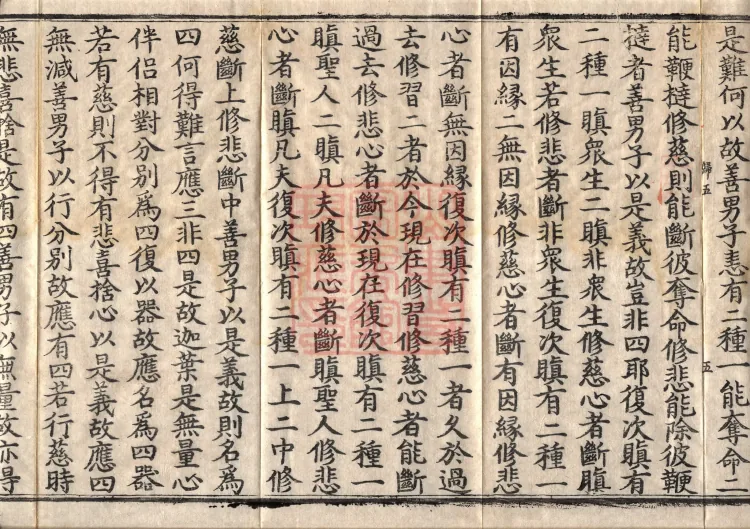 是難何以故善男子恚有二種一能奪命二
能鞭撻修慈則能斷彼奪命修悲能除彼鞭
撻者善男子以是義故豈非四耶復次瞋有
二種一瞋眾生二瞋非眾生修慈心者斷瞋
眾生若修悲者斷非眾生復次瞋有二種一
有因緣二無因緣修慈心者斷有因緣修悲
心者斷無因緣復次瞋有二種一者久於過
去修習二者於今現在修習修慈心者能斷
過去修悲心者斷於現在復次瞋有二種一
瞋聖人二瞋凡夫修慈心者斷瞋聖人修悲
心者斷瞋凡夫復次瞋有二種一上二中修
慈斷上修悲斷中善男子以是義故則名為
四何得難言應三非四是故迦葉是無量心
伴侶相對分別為四復以器故應名為四器
若有慈則不得有悲喜捨心以是義故應四
無減善男子以行分別故應有四若行慈時
無悲喜捨是故有四善男子以無量故亦得
歸五
五